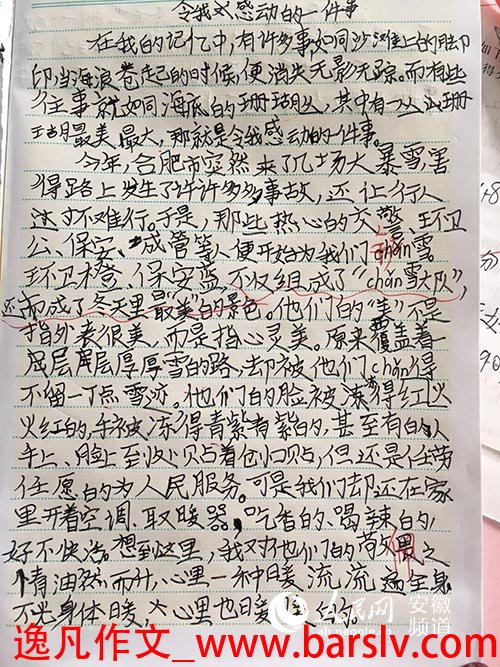 令我感动的一件事
在我的记忆中,有许多事如同沙滩上的脚
印,当海浪卷起的时候,便消失无影无踪。而有些
往事就如同海底的珊瑚,其中有一珊
瑚最美最大,那就是令我感动的一件事。
今年,合肥市突然来了几场大暴雪,害
得路上发生了许许多多事故,还让行人
寸步难行。于是,那些热心的交警、环卫
公、保安、成管等人便开始为我们chǎn雪
环卫橙、保安蓝,不仅组成了“chǎn雪大队”,
还而成了冬天里最“美”的景色。他们的“美”不是
指外表很美,而是指心灵美。原来覆盖着一
层层层厚厚雪的路,却被他们chǎn得
不留一丁点雪迹。他们的脸被冻得红火
火红的,手被冻得青紫青紫的,甚至有的人
手上、脸上到处贴着创口贴,但还是任劳
任怨的为人民服务。可是我们却还在家
里开着空调、取暖器,吃香的、喝辣的,
好不快活。想到这里,我对他们的佩之
情油然而升,心里一种暖流流遍全身
不光身体暖,心里也暖
人民网 安徽
频道
逸凡作文_www.barslv.com